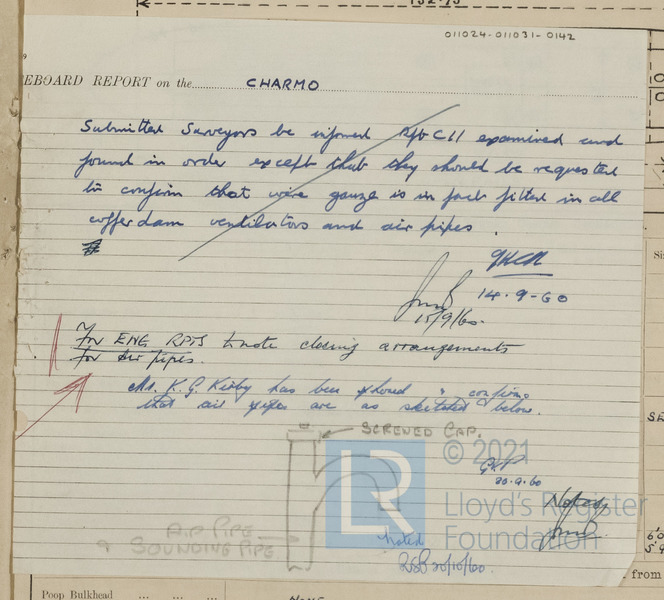 132'-75"
011024-011031-0142
EBOARD REPORT on the CHARMO
Submitted Surveyors be informed Rpt C11 examined and
found in order except that they should be requested
to confirm that wire gauze is in fact fitted in all
cofferdam ventilators and air pipes.
14.9-60
15/9/60.
For ENG. RPTS to note closing arrangements
for air pipes.
Mr. K. G. Kirby has been phoned & confirms
that air pipes are as sketched below.
SCREWED CAP.
© 2021
GKP
20.9.60
LR
Lloyd's Register
Foundation
Noted
AIR PIPE
& SOUNDING PIPE
Noted
20/10/60.
from
Poop Bulkhead ... ... ...